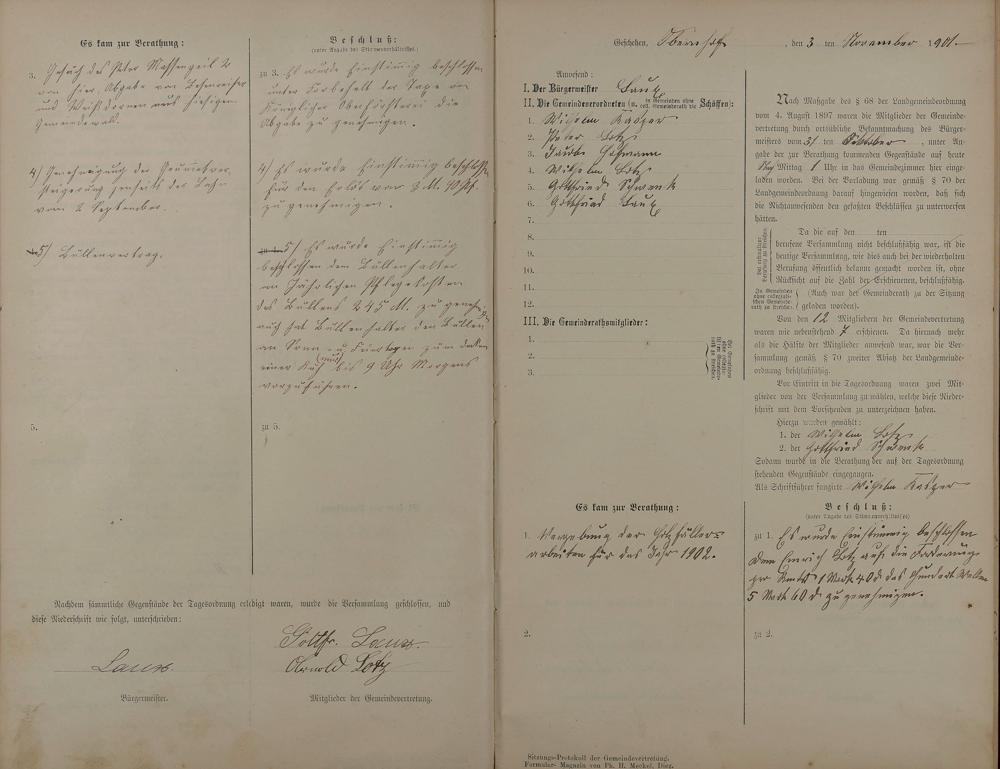 Es kam zur Berathung:
3. Gesuch des Peter Massengeil 2
von hier, Abgabe von
und Weißdornen aus hiesigem
Gemeindewald.
4) Genehmigung der Grummetver-
steigerung jenseits der Bahn
vom 2 September.
5) Bullenvertrag.
5.
Beschluß:
(unter Angabe des Stimmenverhältnisses.)
zu 3. Es wurde Einstimmig beschlossen
unter Vorbehalt der Taxe von
Königlicher Oberförsterei die
Abgabe zu genehmigen.
4) Es wurde Einstimmig beschlossen
für den Erlös von 8 M. 90 Pf.
zu genehmigen.
5) Es wurde Einstimmig
beschlossen dem Bullenhalter
an Jährlichen Pflegekosten
des Bullens 245 M. zu genehmigen
auch hat Bullenhalter den Bullen
an Sonn u. Feiertagen zum decken
einer Kuh (nur) bis 9 Uhr Morgens
vorzuführen.
zu 5.
Nachdem sämmtliche Gegenstände der Tagesordnung erledigt waren, wurde die Versammlung geschlossen, und
diese Niederschrift wie folgt, unterschrieben:
Laux.
Bürgermeister.
Gottfr. Laux.
Arnold Lotz
Mitglieder der Gemeindevertretung.
Geschehen, Obernhof, den 3 ten November 1901.
Anwesend:
I. Der Bürgermeister Laux
II. Die Gemeindeverordneten (u. in Gemeinden ohne coll. Gemeinderath die Schöffen):
1. Wilhelm Kasper
2. Peter Lotz
3. Jacob Hofmann
4. Wilhelm Lotz
5. Gottfried Schwenk
6. Gottfried Laux
7.
8.
9.
10.
11.
12.
III. Die Gemeinderathsmitglieder:
1.
2.
3.
Es kam zur Berathung:
1. Vergebung der Holzfäller-
arbeiten für das Jahr 1902.
2.
Sitzungs-Protokoll der Gemeindevertretung.
Formular-Magazin von Ph. H. Meckel, Diez.
Nach Maßgabe des § 68 der Landgemeindeordnung
vom 4. August 1897 waren die Mitglieder der Gemeinde-
vertretung durch ortsübliche Bekanntmachung des Bürger-
meisters vom 31 ten Oktober, unter An-
gabe der zur Berathung kommenden Gegenstände auf heute
Mittag 1 Uhr in das Gemeindezimmer hier einge-
laden worden. Bei der Vorladung war gemäß § 70 der
Landgemeindeordnung darauf hingewiesen worden, daß sich
die Nichtanwesenden den gefaßten Beschlüssen zu unterwerfen
hätten.
Da die auf den ten
berufene Versammlung nicht beschlußfähig war, ist die
heutige Versammlung, wie dies auch bei der wiederholten
Berufung öffentlich bekannt gemacht worden ist, ohne
Rücksicht auf die Zahl der Erschienenen, beschlußfähig.
In Gemeinden ohne collegialischen Gemeinderath zu streichen.
(Auch war der Gemeinderath zu der Sitzung
geladen worden).
Von den 12 Mitgliedern der Gemeindevertretung
waren wie nebenstehend 7 erschienen. Da hiernach mehr
als die Hälfte der Mitglieder anwesend war, war die Ver-
sammlung gemäß § 70 zweiter Absatz der Landgemeinde-
ordnung beschlußfähig.
Vor Eintritt in die Tagesordnung waren zwei Mit-
glieder von der Versammlung zu wählen, welche diese Nieder-
schrift mit dem Vorsitzenden zu unterzeichnen haben.
Hierzu wurden gewählt:
1. der Wilhelm Lotz
2. der Gottfried Schwenk
Sodann wurde in die Berathung der auf der Tagesordnung
stehenden Gegenstände eingegangen.
Als Schriftführer fungirte Wilhelm Kasper
Beschluß:
(unter Angabe des Stimmenverhältnisses)
zu 1. Es wurde Einstimmig beschlossen
dem Emrich Lotz auf die Forderung
per 1 Mark 40 d. das Hundert Wellen
5 Mark 60 d. zu genehmigen.
zu 2.